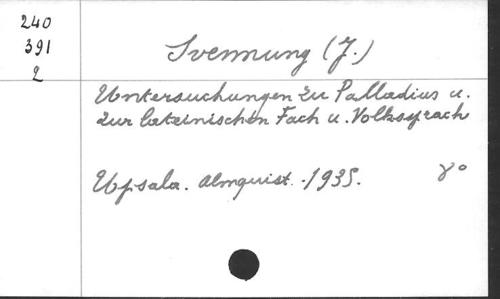 240
391
2
Svennung (J.)
Untersuchungen zu Palladius u.
zur lateinischen Fach u. Volkssprach
Upsala. Almquist. 1935. 8°